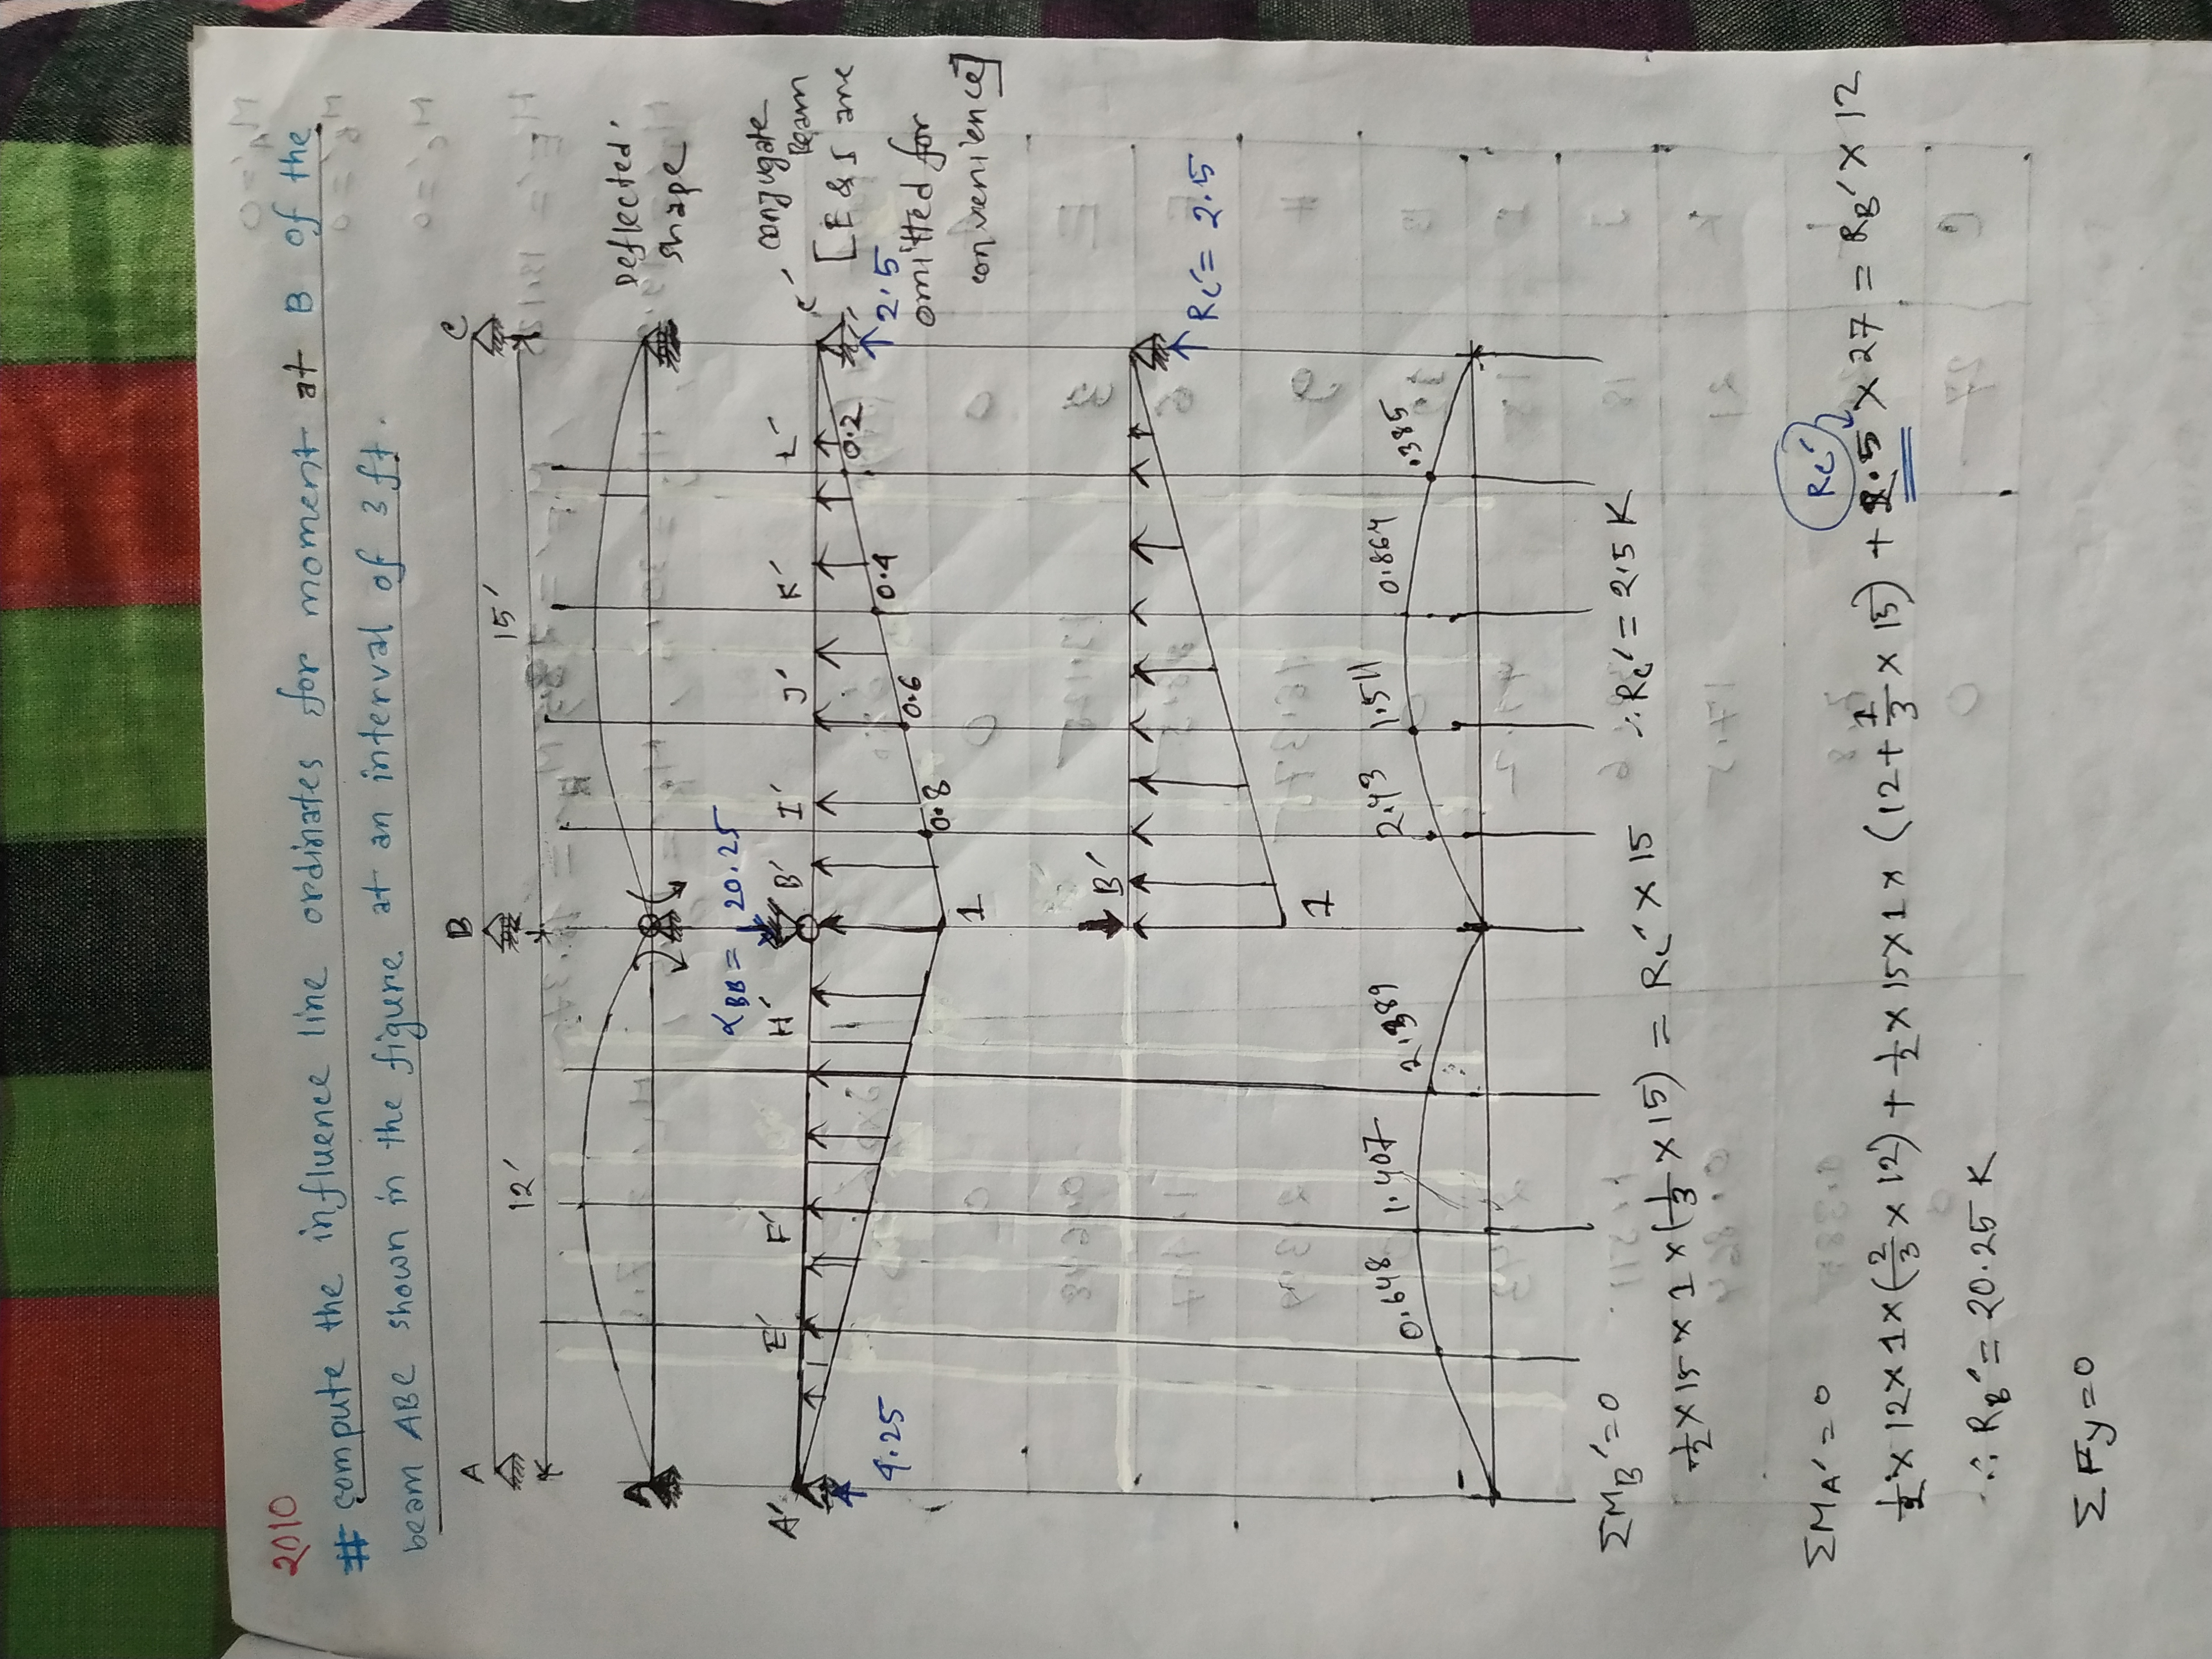 2010
# compute the influence line ordinates for moment at B of the
beam ABC shown in the figure at an interval of 3 ft.
A B C
12' 15'
Deflected
shape
αBB = 20.25
A' E' F' H' B' I' J' K' L' C'
conjugate
Beam
[E & I are
omitted for
convenience]
4.25
1 0.8 0.6 0.4 0.2
2.5
B'
1
Rc' = 2.5
0.648 1.407 2.389 2.43 1.511 0.864 .385
ΣMB' = 0
1/2 × 15 × 1 × (1/3 × 15) = Rc' × 15 ∴ Rc' = 2.5 K
ΣMA' = 0
Rc'
1/2 × 12 × 1 × (2/3 × 12) + 1/2 × 15 × 1 × (12 + 1/3 × 15) + 2.5 × 27 = RB' × 12
∴ RB' = 20.25 K
ΣFy = 0